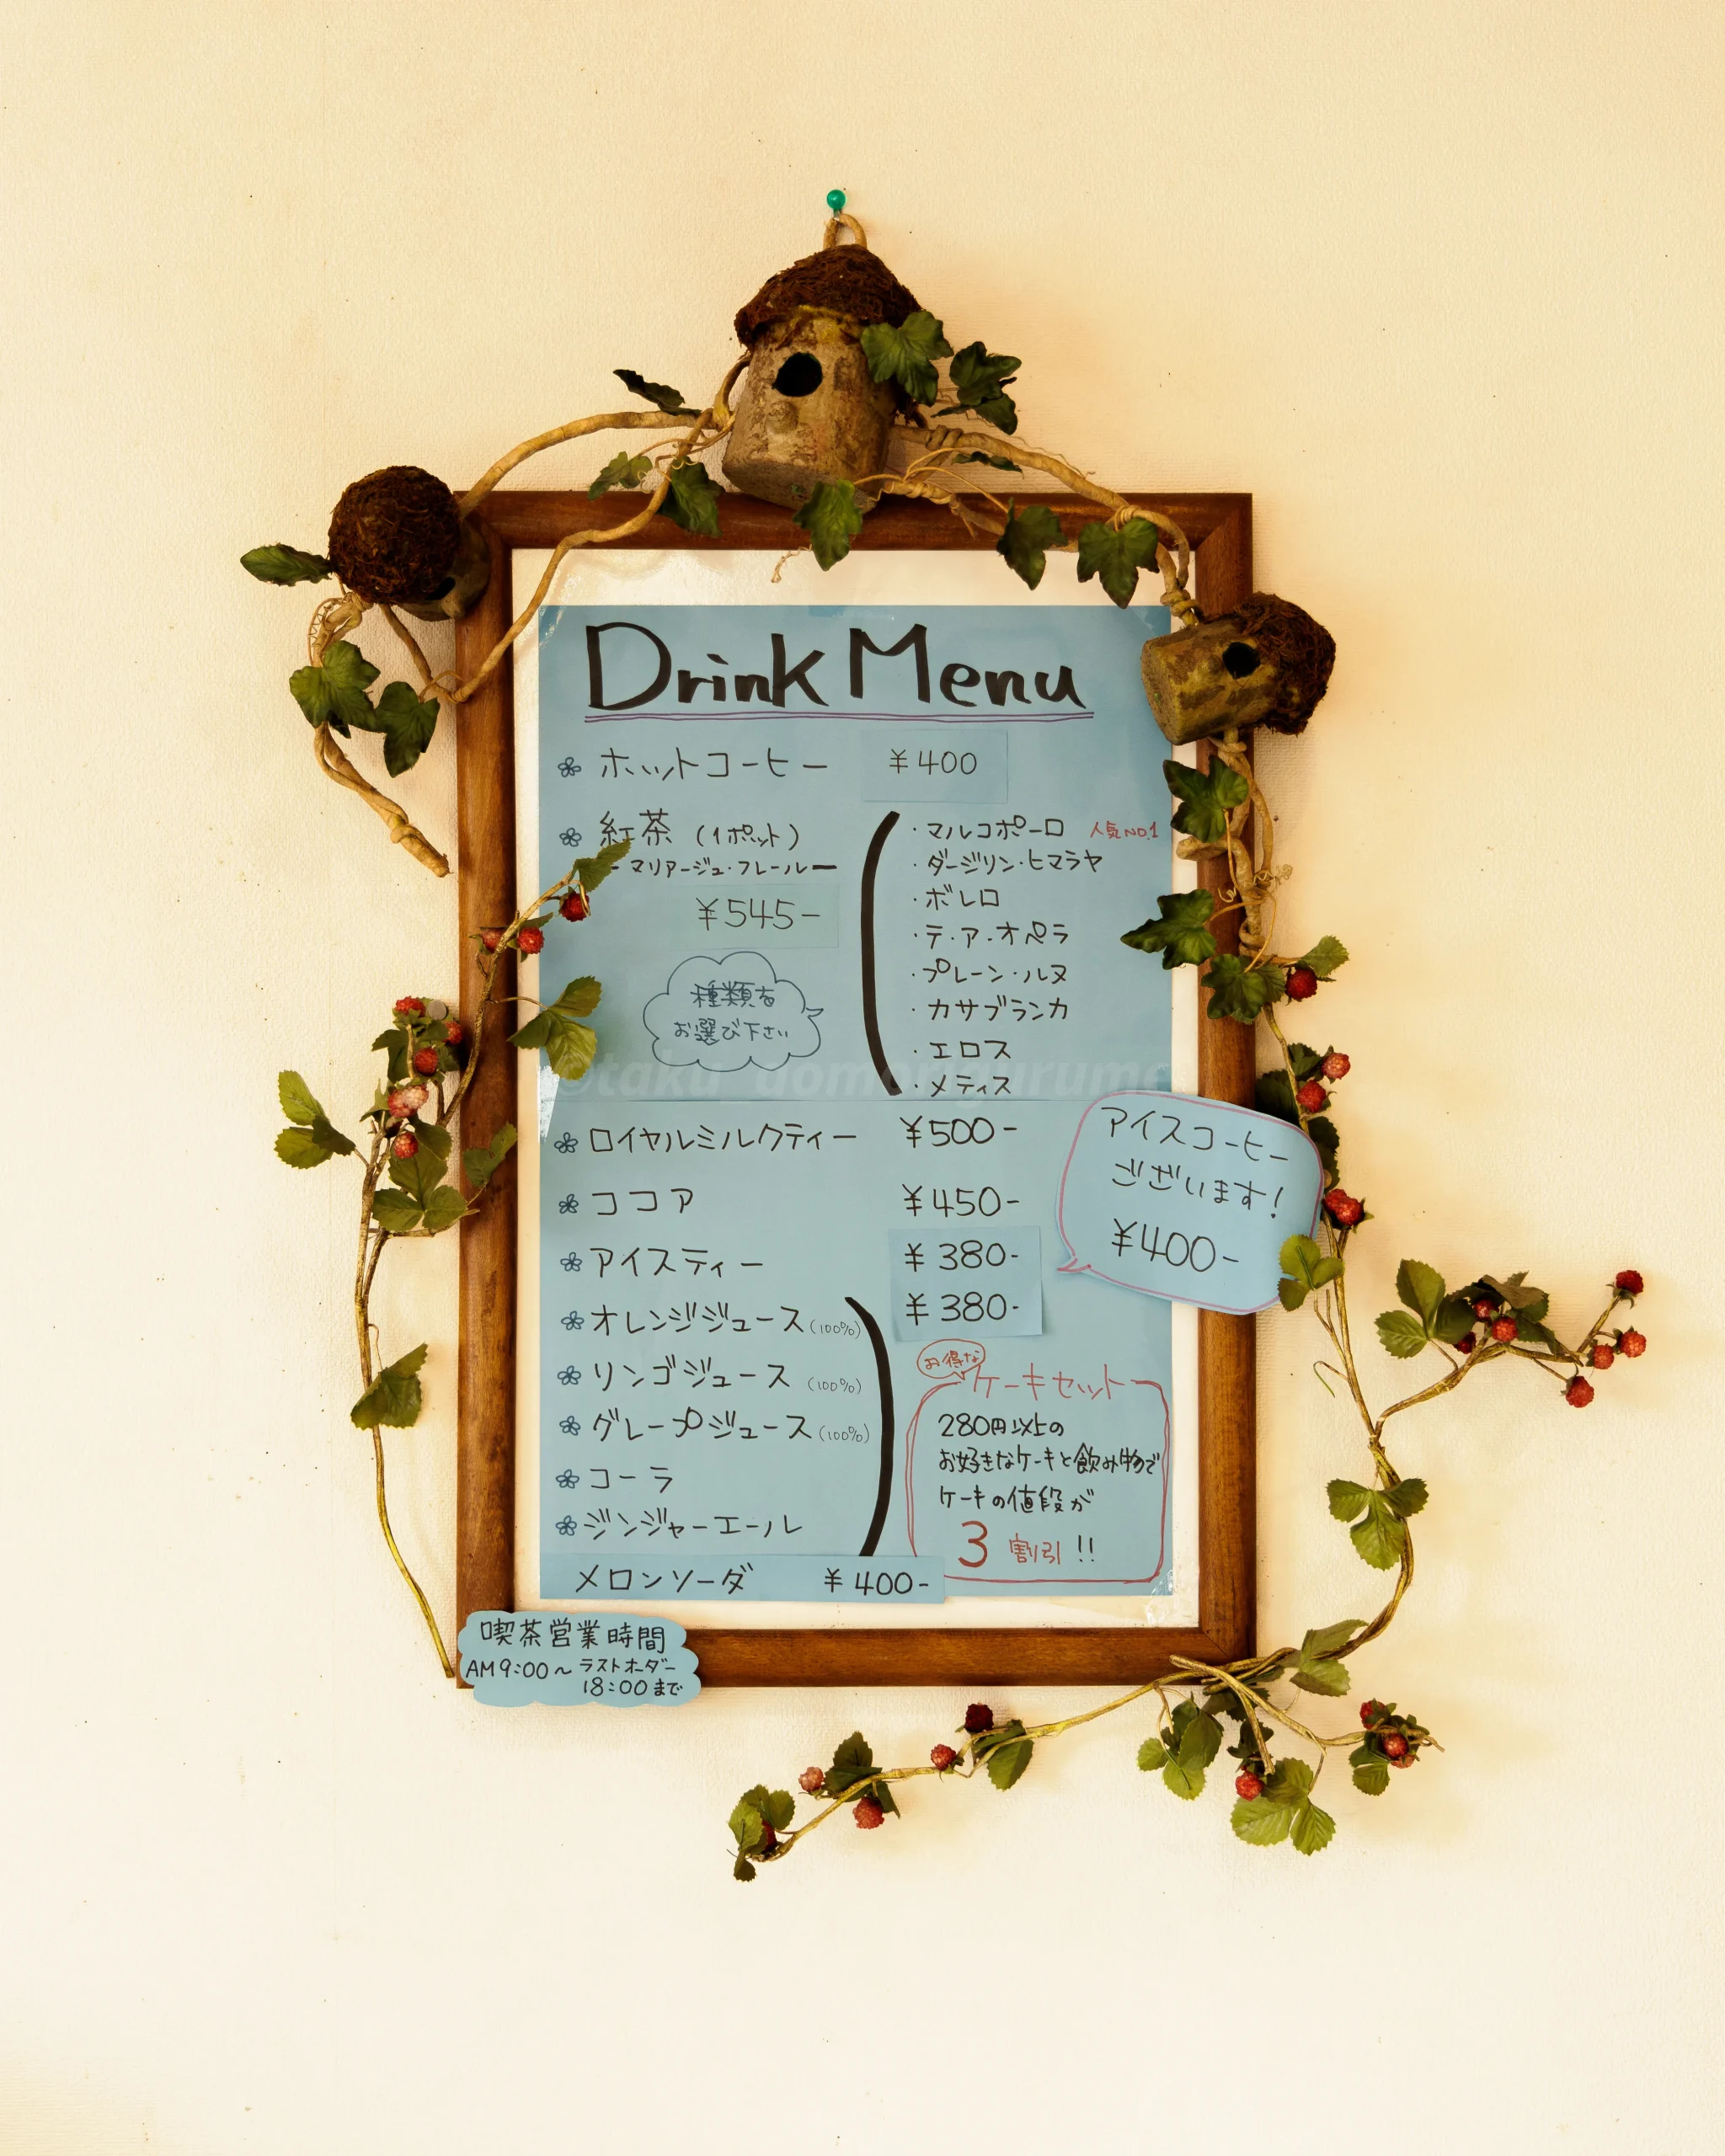 Drink Menu
ホットコーヒー ¥400
紅茶 (1ポット)
ーマリアージュ・フレールー
¥545-
種類を
お選び下さい
・マルコポーロ 人気NO.1
・ダージリン・ヒマラヤ
・ボレロ
・テ・ア・オペラ
・プレーン・ルヌ
・カサブランカ
・エロス
・メティス
ロイヤルミルクティー ¥500-
ココア ¥450-
アイスティー ¥380-
オレンジジュース(100%) ¥380-
リンゴジュース (100%)
グレープジュース(100%)
コーラ
ジンジャーエール
メロンソーダ ¥400-
アイスコーヒー
ございます!
¥400-
お得な
ケーキセット
280円以上の
お好きなケーキと飲み物で
ケーキの値段が
3割引!!
喫茶営業時間
AM9:00~ラストオーダー
18:00まで